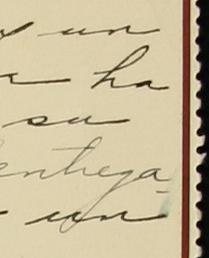 un
ha
su
entrega
un